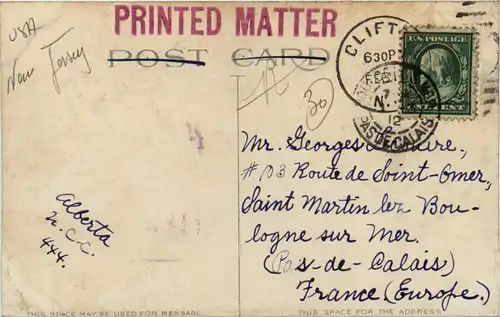 USA
New Jersey
PRINTED MATTER
POST CARD
R
30
CLIFTO
630P
FEB
N.J.
U.S. POSTAGE
CENT
12
PAS DE CALAIS
Mr. Georges
#103 Route de Saint-Omer,
Saint Martin lez Bou-
logne sur Mer.
(Pas-de-Calais)
France (Europe.)
Alberta
U.C.C.
444.
THIS SPACE MAY BE USED FOR MESSAGE
THIS SPACE FOR THE ADDRESS